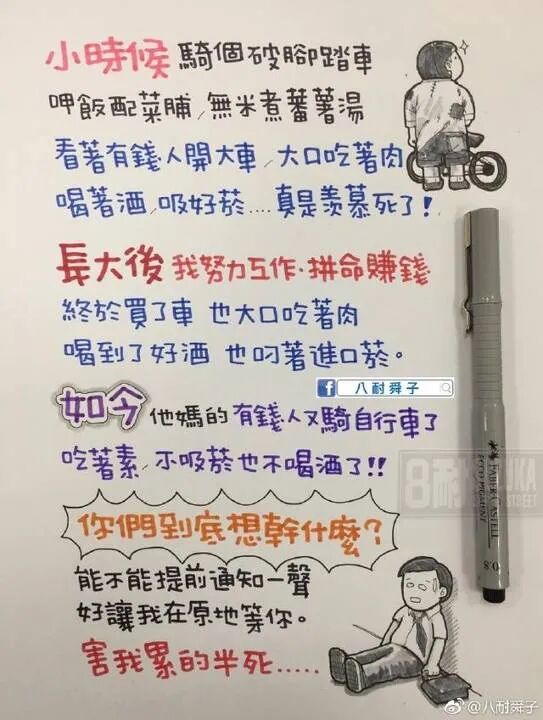 小時候 騎個破腳踏車
呷飯配菜脯,無米煮蕃薯湯
看著有錢人開大車,大口吃著肉
喝著酒,吸好菸....真是羨慕死了!
長大後 我努力工作.拼命賺錢
終於買了車 也大口吃著肉
喝到了好酒 也叼著進口菸。
八耐舜子
如今 他媽的 有錢人又騎自行車了
吃著素,不吸菸也不喝酒了!!
你們到底想幹什麼?
能不能提前通知一聲
好讓我在原地等你。
害我累的半死.....
FABER-CASTELL
ECCO PIGMENT
0.8
@八耐舜子